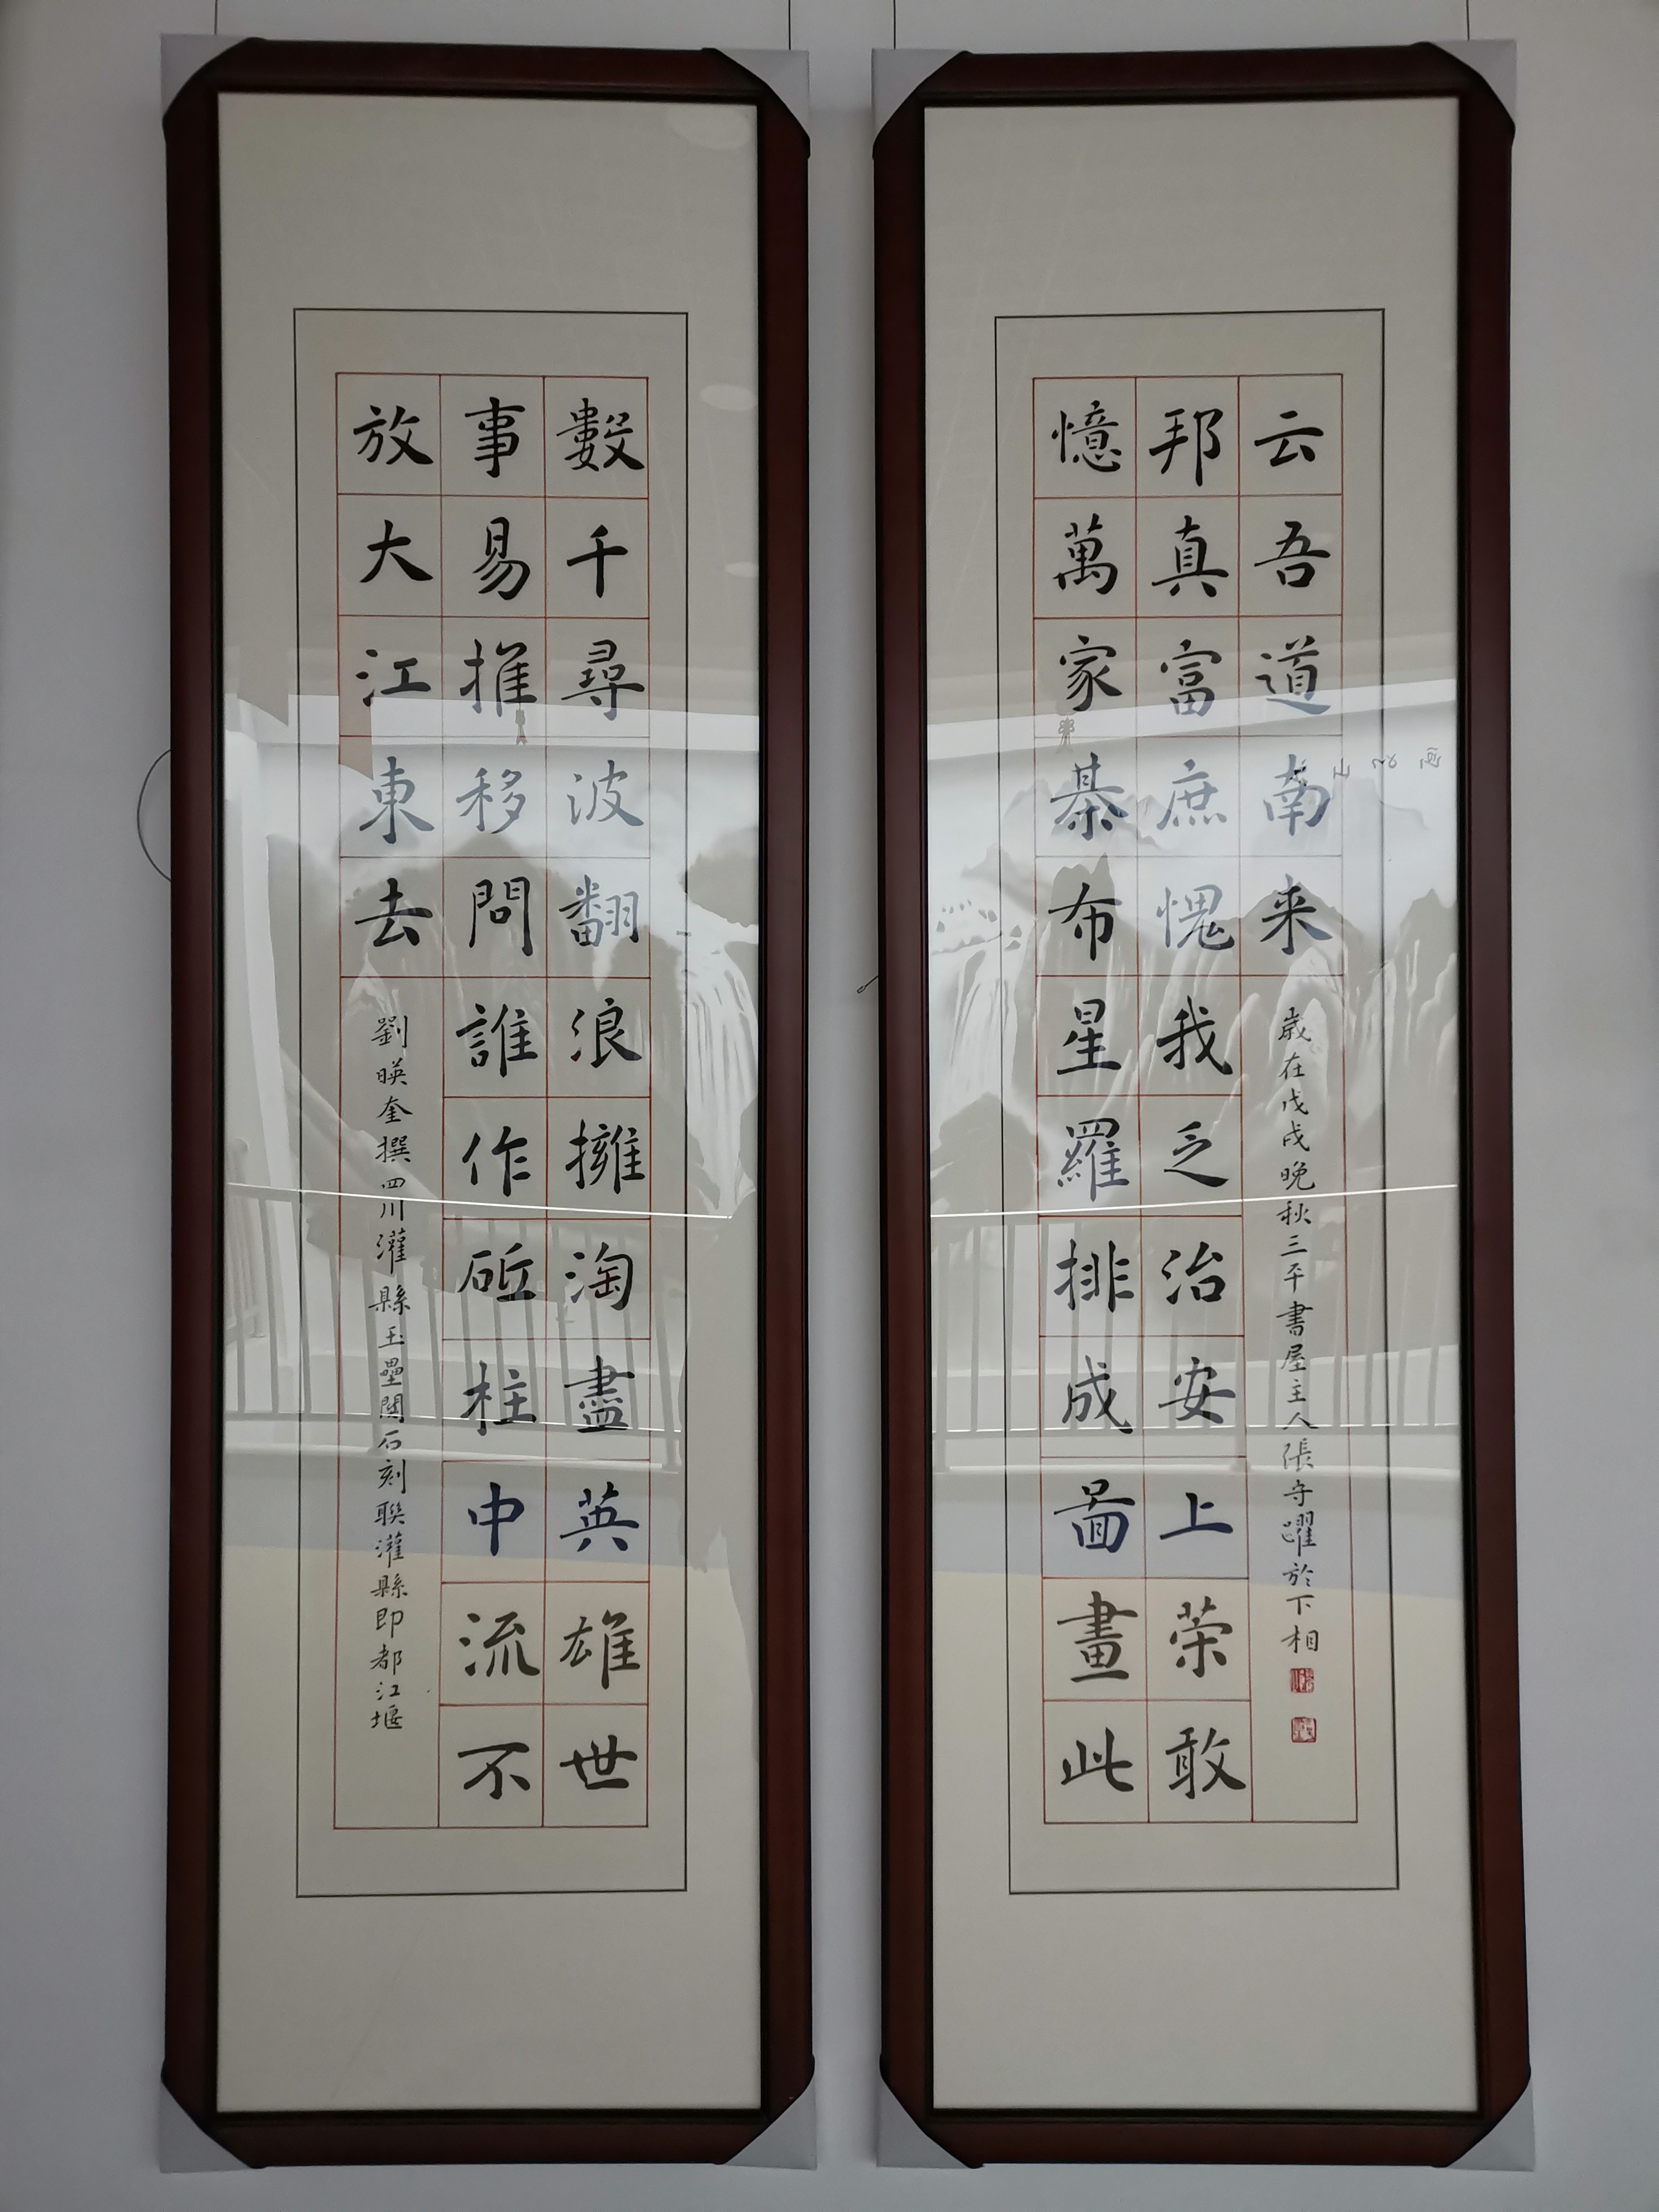 數千尋波翻浪擁淘盡英雄世
事易推移問誰作砥柱中流不
放大江東去
劉暎奎撰四川灌縣玉壘關石刻聯灌縣即都江堰
憶萬家棊布星羅排成啚畫此
邦真富庶愧我乏治安上策敢
云吾道南来
歲在戊戌晚秋三平書屋主人張守躍於下相